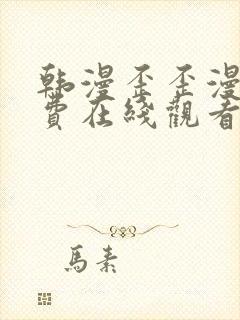 韩漫歪歪漫
費在綫觀看
馬素